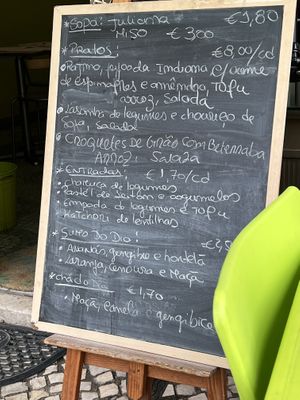 * Sopa: Juliana €1,80
Miso €3,00
* Pratos: €8,00/cd
feijoada Indiana c/ creme
de espinafres e amêndoa, Tofu
arroz, Salada
• Lasanha de legumes e chouriço de
Soja, Salada
Croquetes de Grão com Beterraba
Arroz, Salada
* Entradas: €1,70/cd
• Chamuça de legumes
• Pastel de Seitan e cogumelos
• Empada de legumes e Tofu
• Katchori de lentilhas
* Sumo do Dia: €2,5
• Ananás, gengibre e hortelã
• Laranja, Cenoura e Maçã
* chá do Dia €1,70
• Maçã, Canela e gengibre